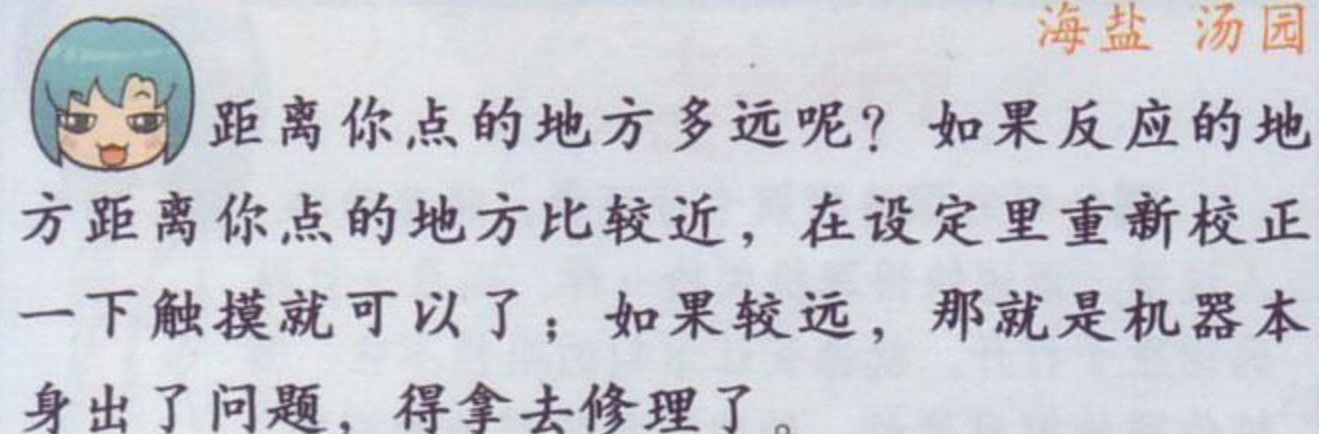 海盐 汤园
距离你点的地方多远呢？如果反应的地
方距离你点的地方比较近，在设定里重新校正
一下触摸就可以了；如果较远，那就是机器本
身出了问题，得拿去修理了。